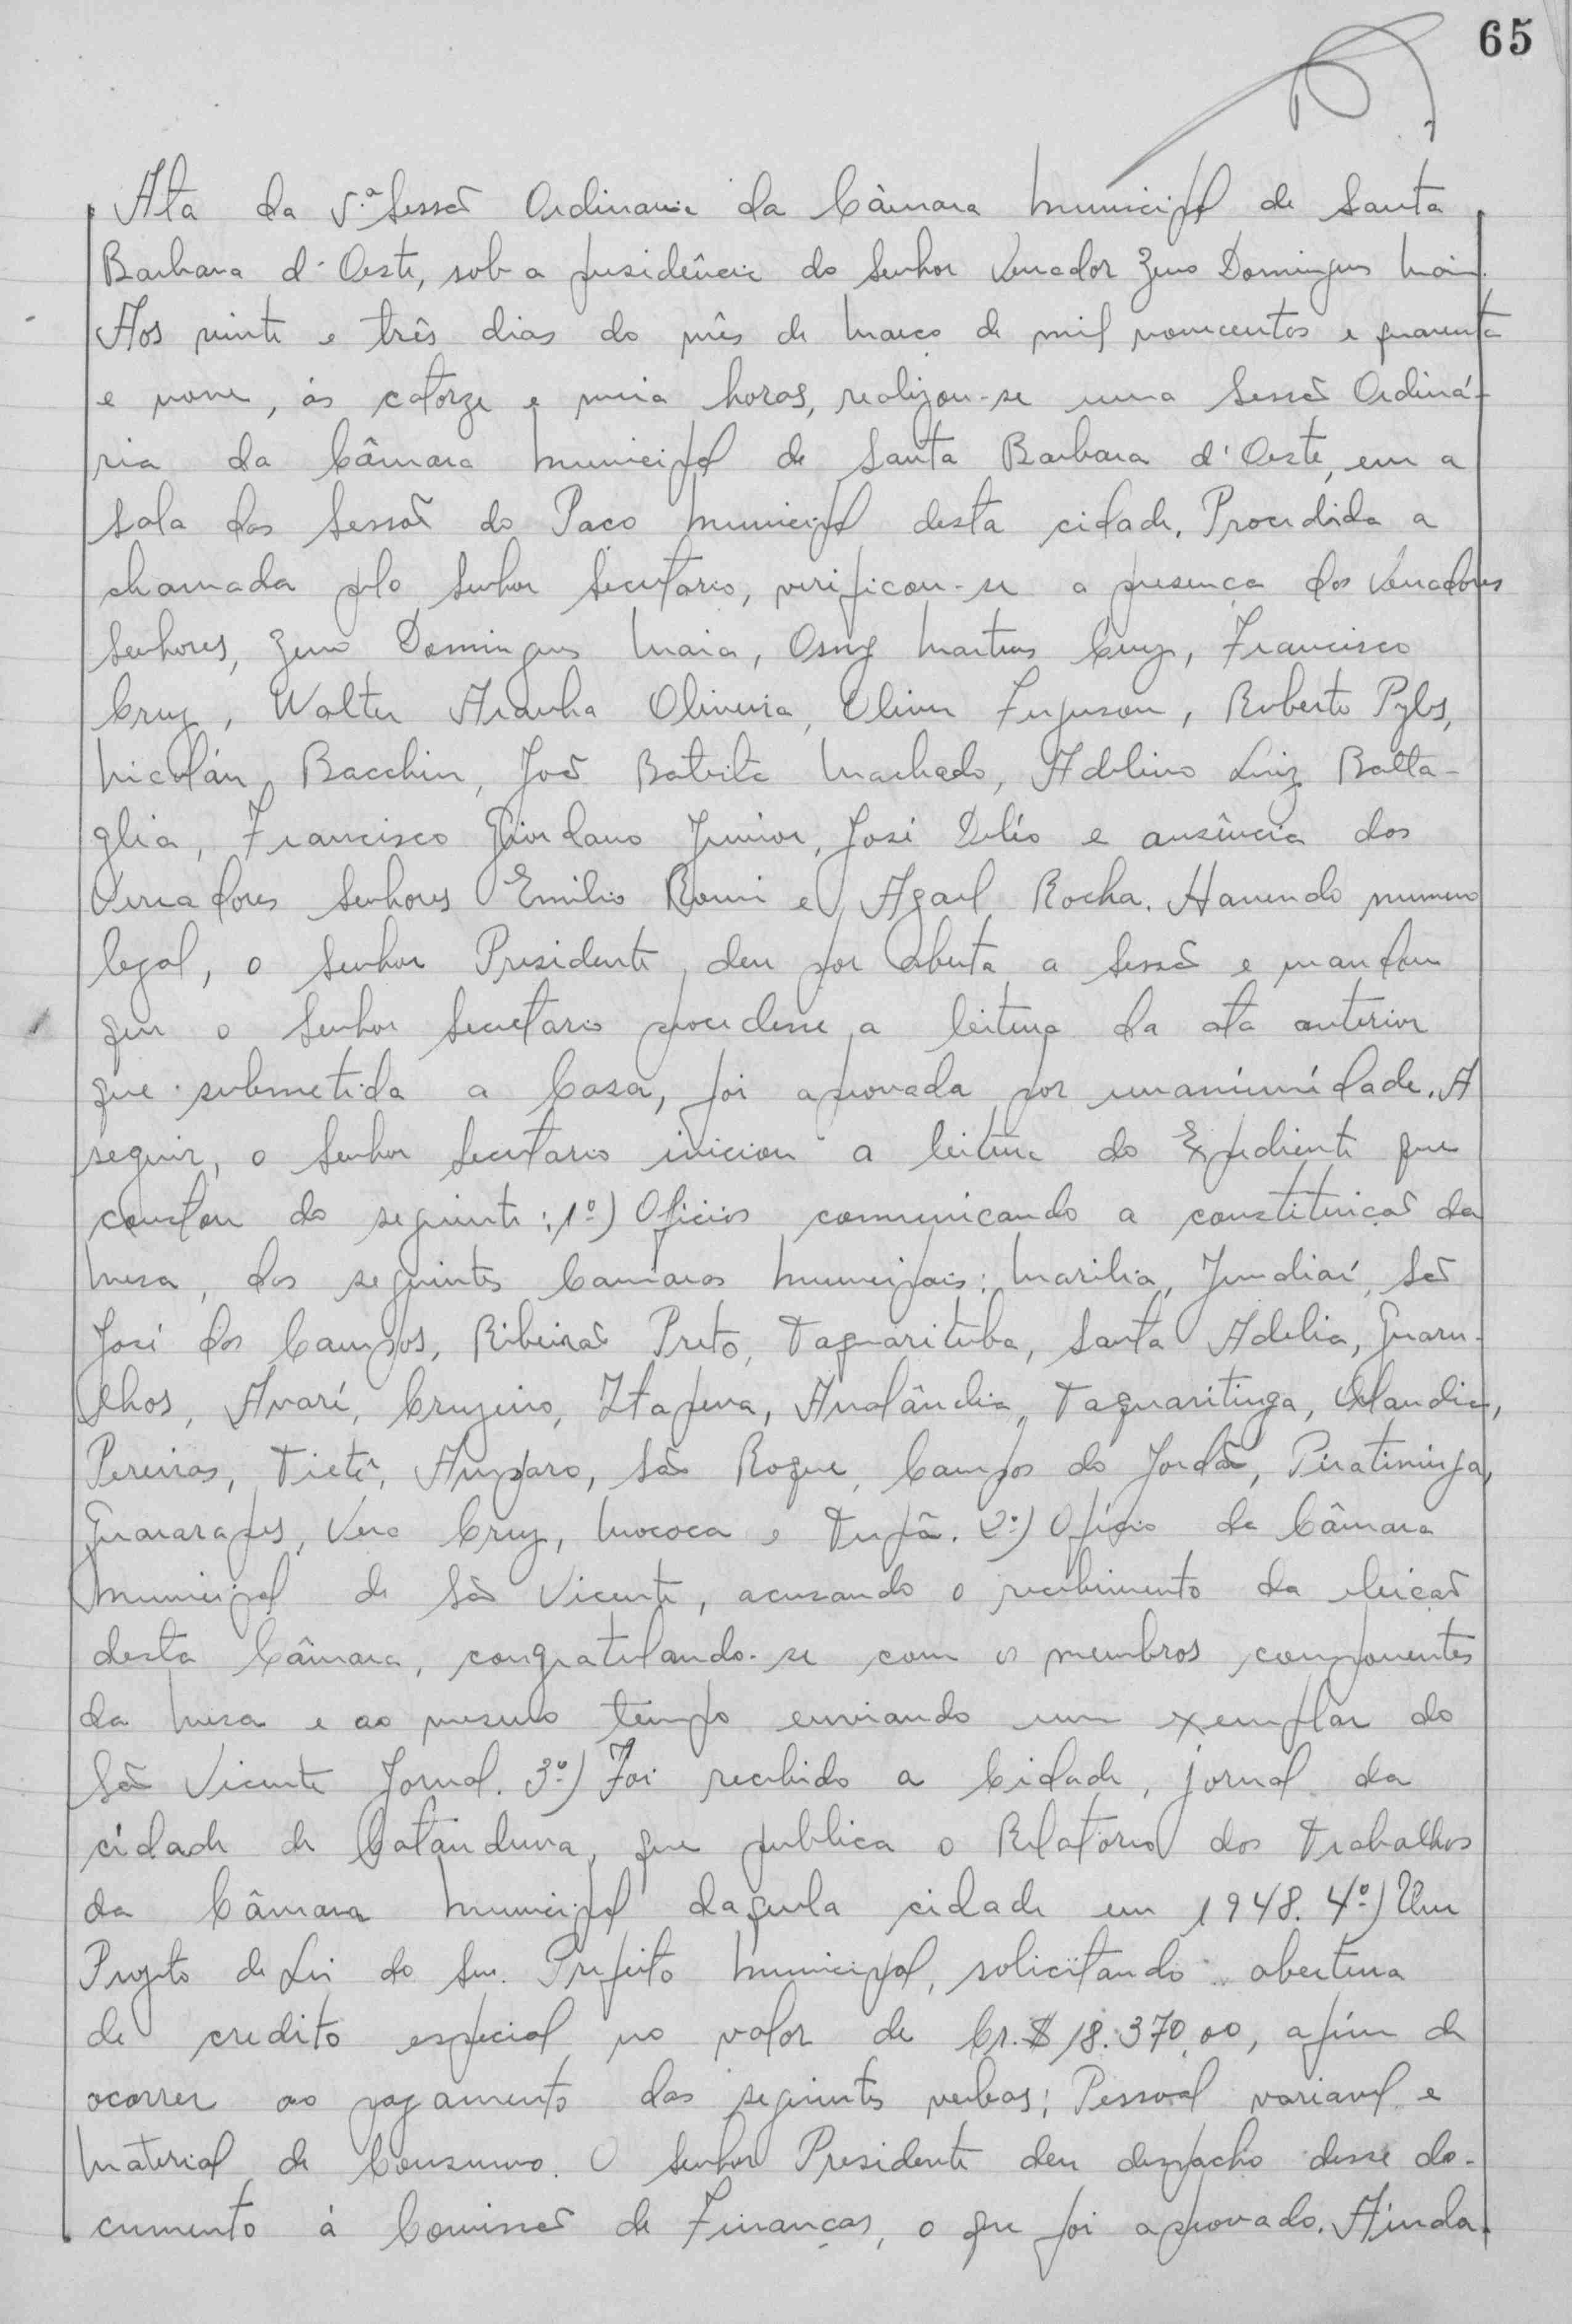 65
Ata da 5.ª Sessão Ordinaria da Câmara Municipal de Santa
Barbara d'Oeste, sob a presidência do Senhor Vereador Zeno Domingues Maia.
Aos vinte e três dias do mês de Março de mil novecentos e quarenta
e nove, ás catorze e meia horas, realizou-se uma Sessão Ordiná-
ria da Câmara Municipal de Santa Barbara d'Oeste, em a
Sala das Sessoã do Paco Municipal desta cidade. Procedida a
chamada pelo Senhor Secretario, verificou-se a presença dos Vereadores
Senhores, Zeno Domingues Maia, Osny Martins Cruz, Francisco
Cruz, Walter Aranha Oliveira, Oliver Ferguson, Roberto Pyles,
Nicolán Bacchin, João Batista Machado, Adelino Luiz Batta-
glia, Francisco Giordano Junior, José Delío e ausência dos
Vereadores Senhores Emilio Romi e Agael Rocha. Havendo numero
legal, o Senhor Presidente, deu por aberta a Sessão e mandou
que o Senhor Secretario procedesse a leitura da ata anterior
que submetida a Casa, foi aprovada por unanímídade. A
seguir, o Senhor Secretario iniciou a leitura do Expediente que
constou do seguinte: 1º) Oficios comunicando a constituiçaõ da
Mesa, das seguintes Camaras Municipais: Marilia, Jundiaí, São
José dos Campos, Ribeiraõ Preto, Taquarituba, Santa Adelia, Guaru-
lhos, Avaré, Cruzeiro, Itapeva, Analândia, Taquaritinga, Orlandia,
Pereiras, Tietê, Amparo, São Roque, Campos do Jordão, Piratininga,
Guararapes, Vera Cruz, Mococa e Tupã. 2º) Ofício da Câmara
Municipal de São Vicente, acusando o recebimento da eleiçaõ
desta Câmara, congratulando-se com os membros componentes
da Mesa e ao mesmo tempo enviando um exemplar do
São Vicente Jornal. 3º) Foi recebido a Cidade, jornal da
cidade de Catanduva, que publica o Relatório dos Trabalhos
da Câmara Municipal daquela cidade em 1948. 4º) Um
Projeto de Lei do Snr. Prefeito Municipal, solicitando abertura
de credito especial no valor de Cr.$ 18.370,00, afim de
ocorrer ao pagamento das seguintes verbas: Pessoal variavel e
Material de Consumo. O Senhor Presidente deu despacho desse do-
cumento á Comissaõ de Finanças, o que foi aprovado. Ainda